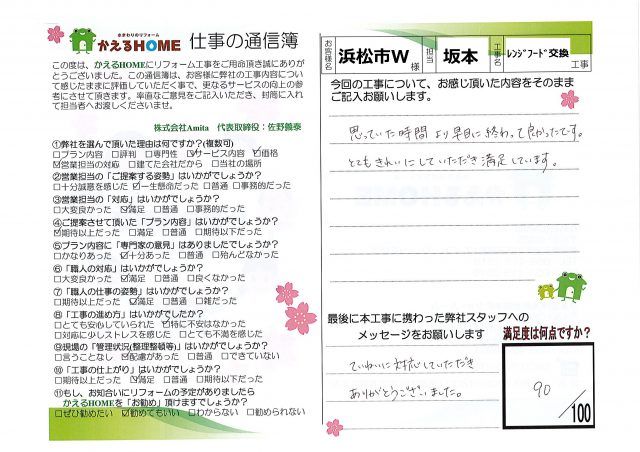 水まわりのリフォーム
かえるHOME 仕事の通信簿
この度は、かえるHOMEにリフォーム工事をご用命頂き誠にありが
とうございました。この通信簿は、お客様に弊社の工事内容につい
て感じたままに評価していただく事で、更なるサービスの向上の参
考にさせて頂きます。率直なご意見をご記入いただき、封筒に入れ
て担当者へお渡しくださいませ。
株式会社Amita 代表取締役：佐野義泰
①弊社を選んで頂いた理由は何ですか?(複数可)
□プラン内容 □評判 □専門性 ☑サービス内容 ☑価格
☑営業担当の対応 □建てた会社だから □当社の場所
②営業担当の「ご提案する姿勢」はいかがでしょうか?
□十分誠意を感じた ☑一生懸命だった □普通 □事務的だった
③営業担当の「対応」はいかがでしょうか?
□大変良かった ☑満足 □普通 □事務的だった
④ご提案させて頂いた「プラン内容」はいかがでしょうか?
☑期待以上だった □満足 □普通 □期待以下だった
⑤プラン内容に「専門家の意見」はありましたでしょうか?
□かなりあった ☑十分あった □普通 □殆んどなかった
⑥「職人の対応」はいかがでしょうか?
□大変良かった ☑満足 □普通 □良くなかった
⑦「職人の仕事の姿勢」はいかがでしょうか?
□期待以上だった ☑満足 □普通 □雑だった
⑧「工事の進め方」はいかがでしたか?
□とても安心していられた ☑特に不安はなかった
□対応に少しストレスを感じた □とても不満を感じた
⑨現場の「管理状況(整理整頓等)」はいかがでしょうか?
□言うことなし ☑配慮があった □普通 □できていない
⑩「工事の仕上がり」はいかがでしょうか?
□期待以上だった ☑満足 □普通 □期待以下だった
⑪もし、お知合いにリフォームの予定がありましたら
かえるHOMEを「お勧め」頂けますでしょうか?
□ぜひ勧めたい ☑勧めてもいい □わからない □勧められない
お客様名 浜松市W様 担当 坂本 工事名 レンジフード交換 工事
今回の工事について、お感じ頂いた内容をそのまま
ご記入お願いします。
思っていた時間より早目に終わって良かったです。
とてもきれいにしていただき満足しています。
最後に本工事に携わった弊社スタッフへの
メッセージをお願いします
満足度は何点ですか?
ていねいに対応していただき
ありがとうございました。
90
/100